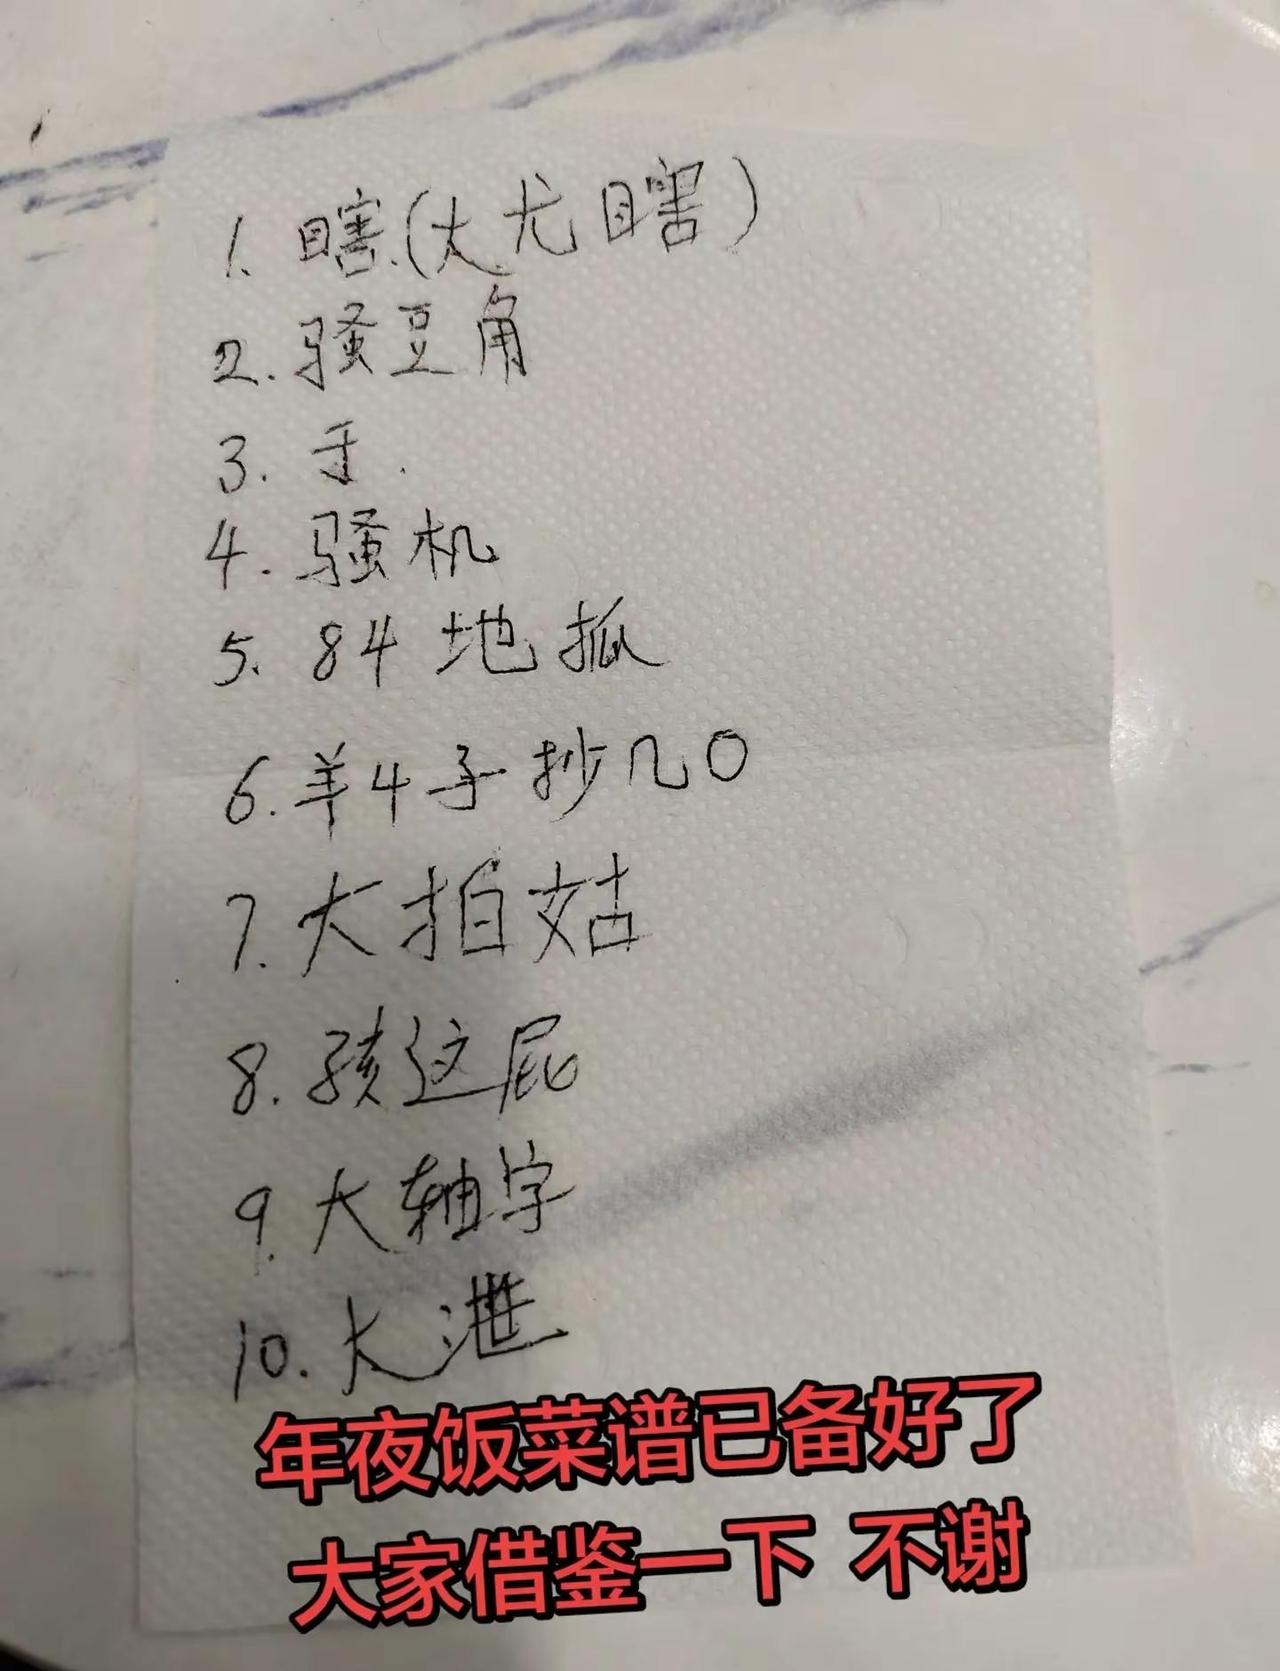 1. 瞎(大尤瞎)
2. 骚豆角
3. 于.
4. 骚机
5. 84地狐
6. 羊4子抄几0
7. 大拍姑
8. 孩这屁
9. 大轴字
10. 大泄
年夜饭菜谱已备好了
大家借鉴一下 不谢